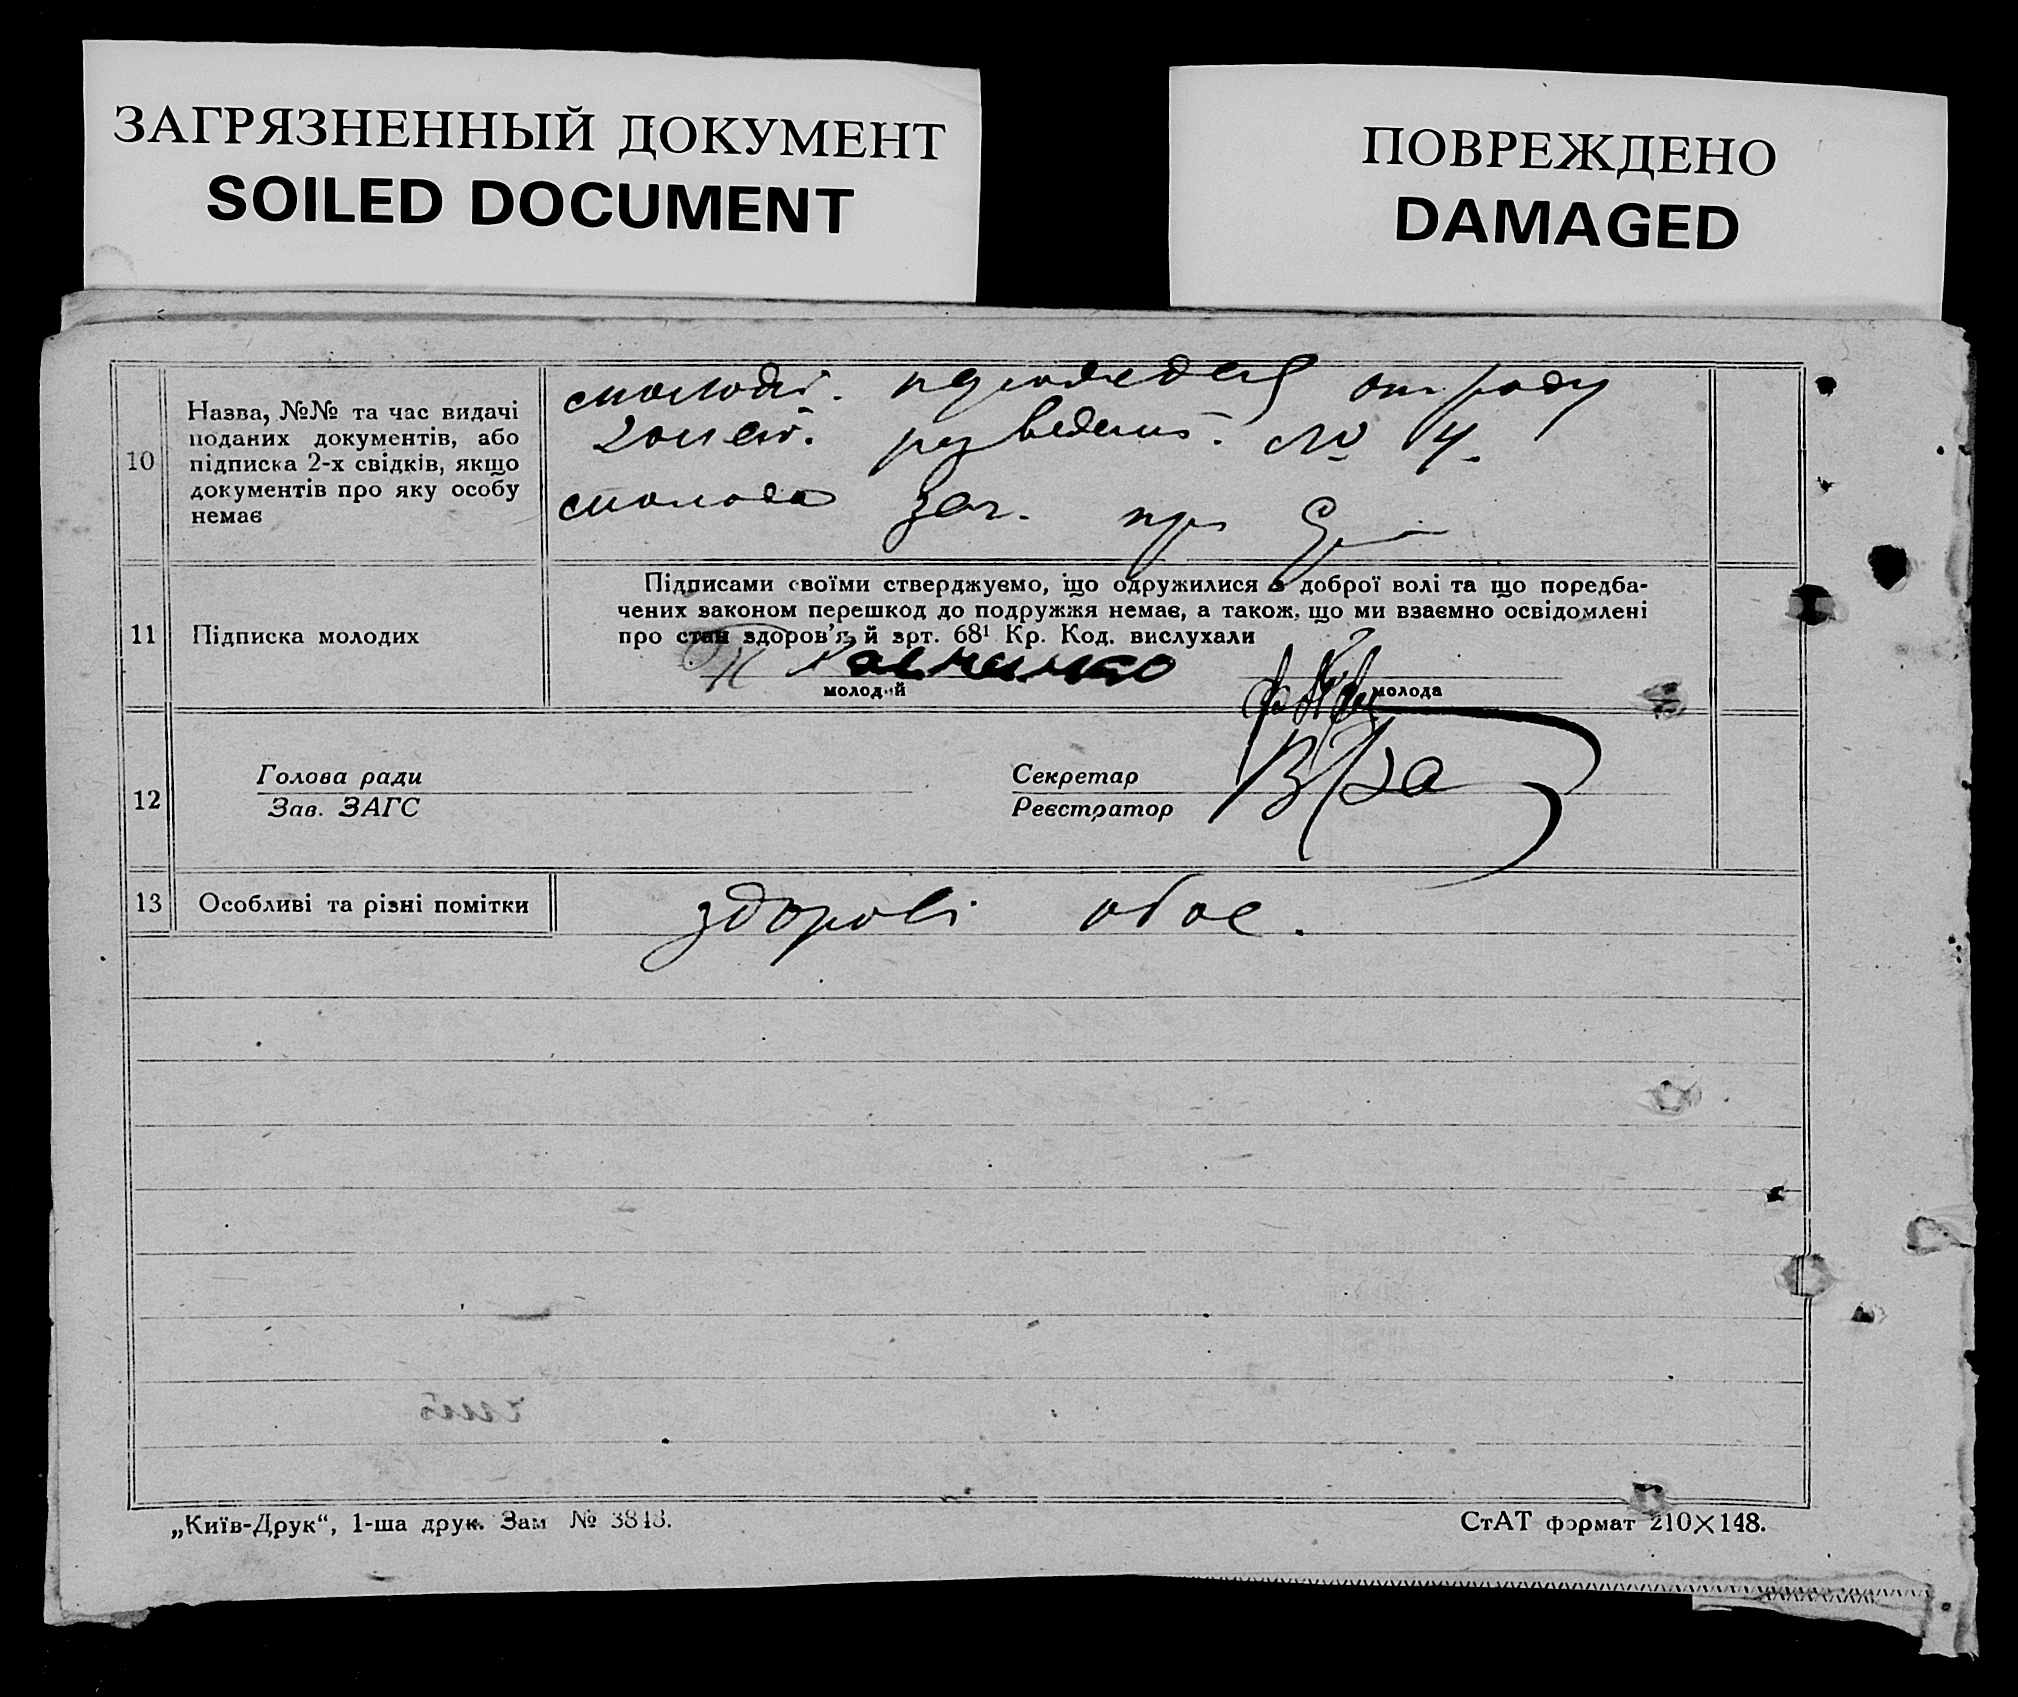 ЗАГРЯЗНЕННЫЙ ДОКУМЕНТ
SOILED DOCUMENT
ПОВРЕЖДЕНО
DAMAGED
10
Назва, №№ та час видачі
поданих документів, або
підписка 2-х свідків, якщо
документів про яку особу
немає
№ 4.
11
Підписка молодих
Підписами своїми стверджуємо, що одружилися з доброї волі та що поредба-
чених законом перешкод до подружжя немає, а також, що ми взаємно освідомлені
про стан здоров'я, й арт. 68¹ Кр. Код. вислухали
молодий
молода
12
Голова ради
Зав. ЗАГС
Секретар
Реєстратор
13
Особливі та різні помітки
здорові обоє.
„Київ-Друк“, 1-ша друк. Зам № 3843.
СтАТ формат 210×148.